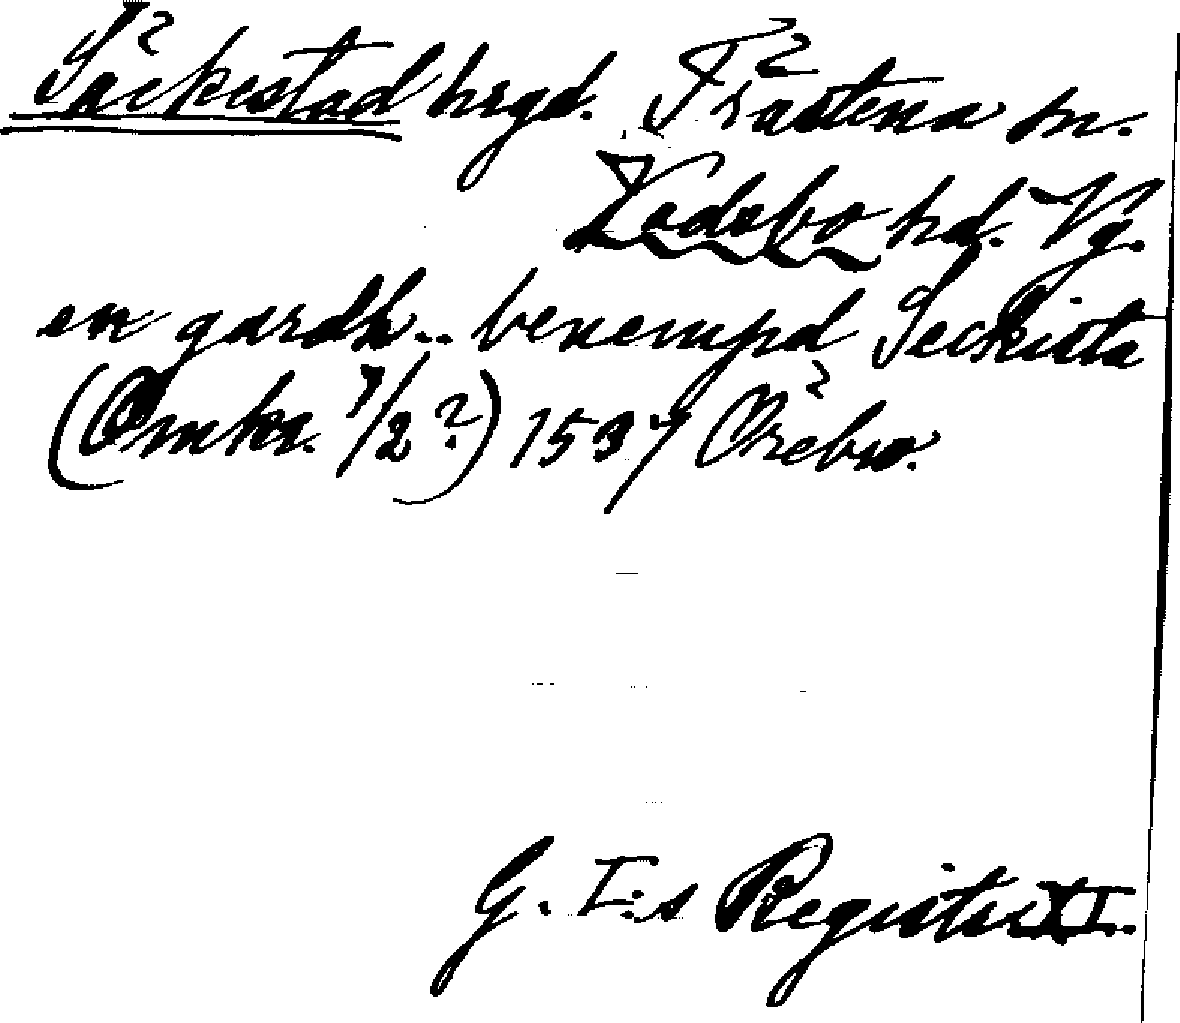 Säckestad hrgd. Fräntena sn.
Kodebo hd. Vg.
en gardh.. benempd Seckista
(Omkr. 1/2?) 1537 Örebro.
G. I:s Registr XI.